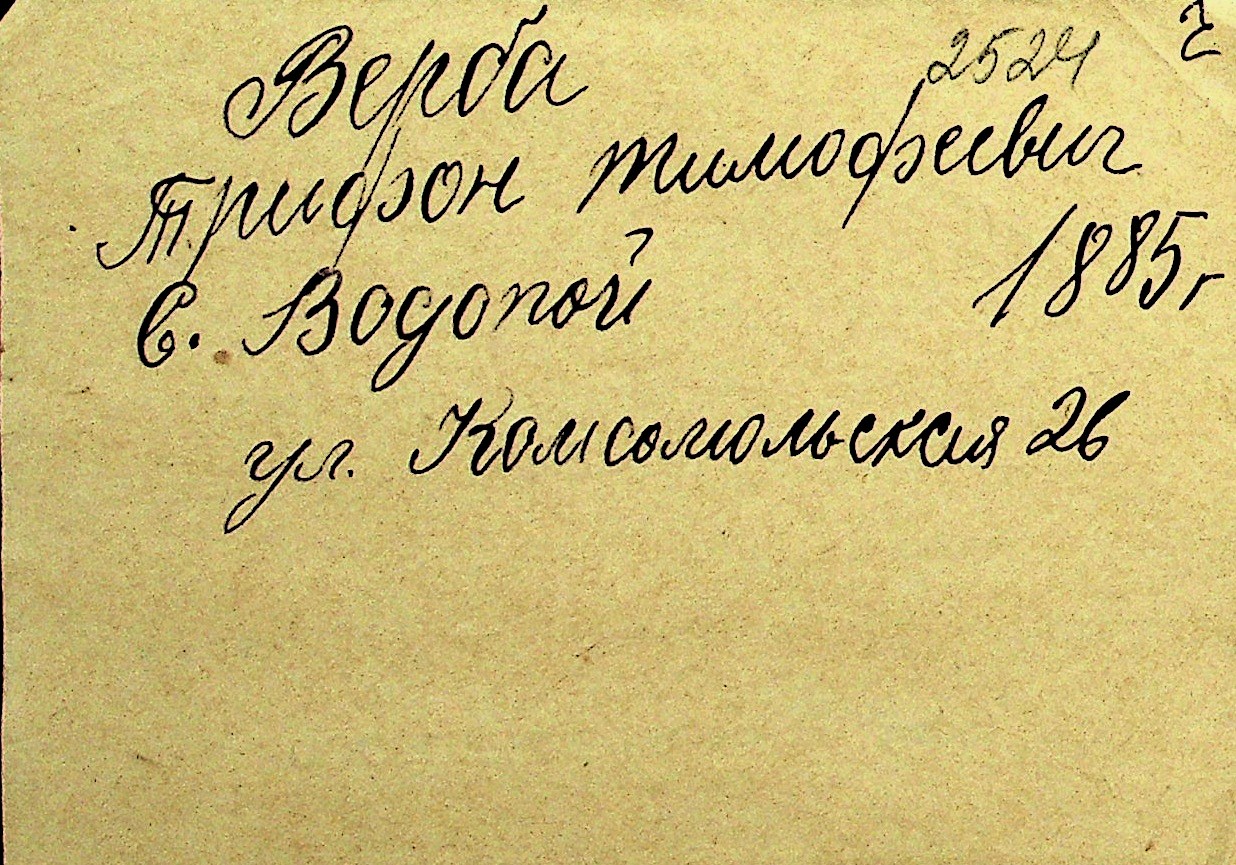 2524
Верба
Трифон Тимофеевич
с. Водопой 1885 г
ул. Комсомольская 26